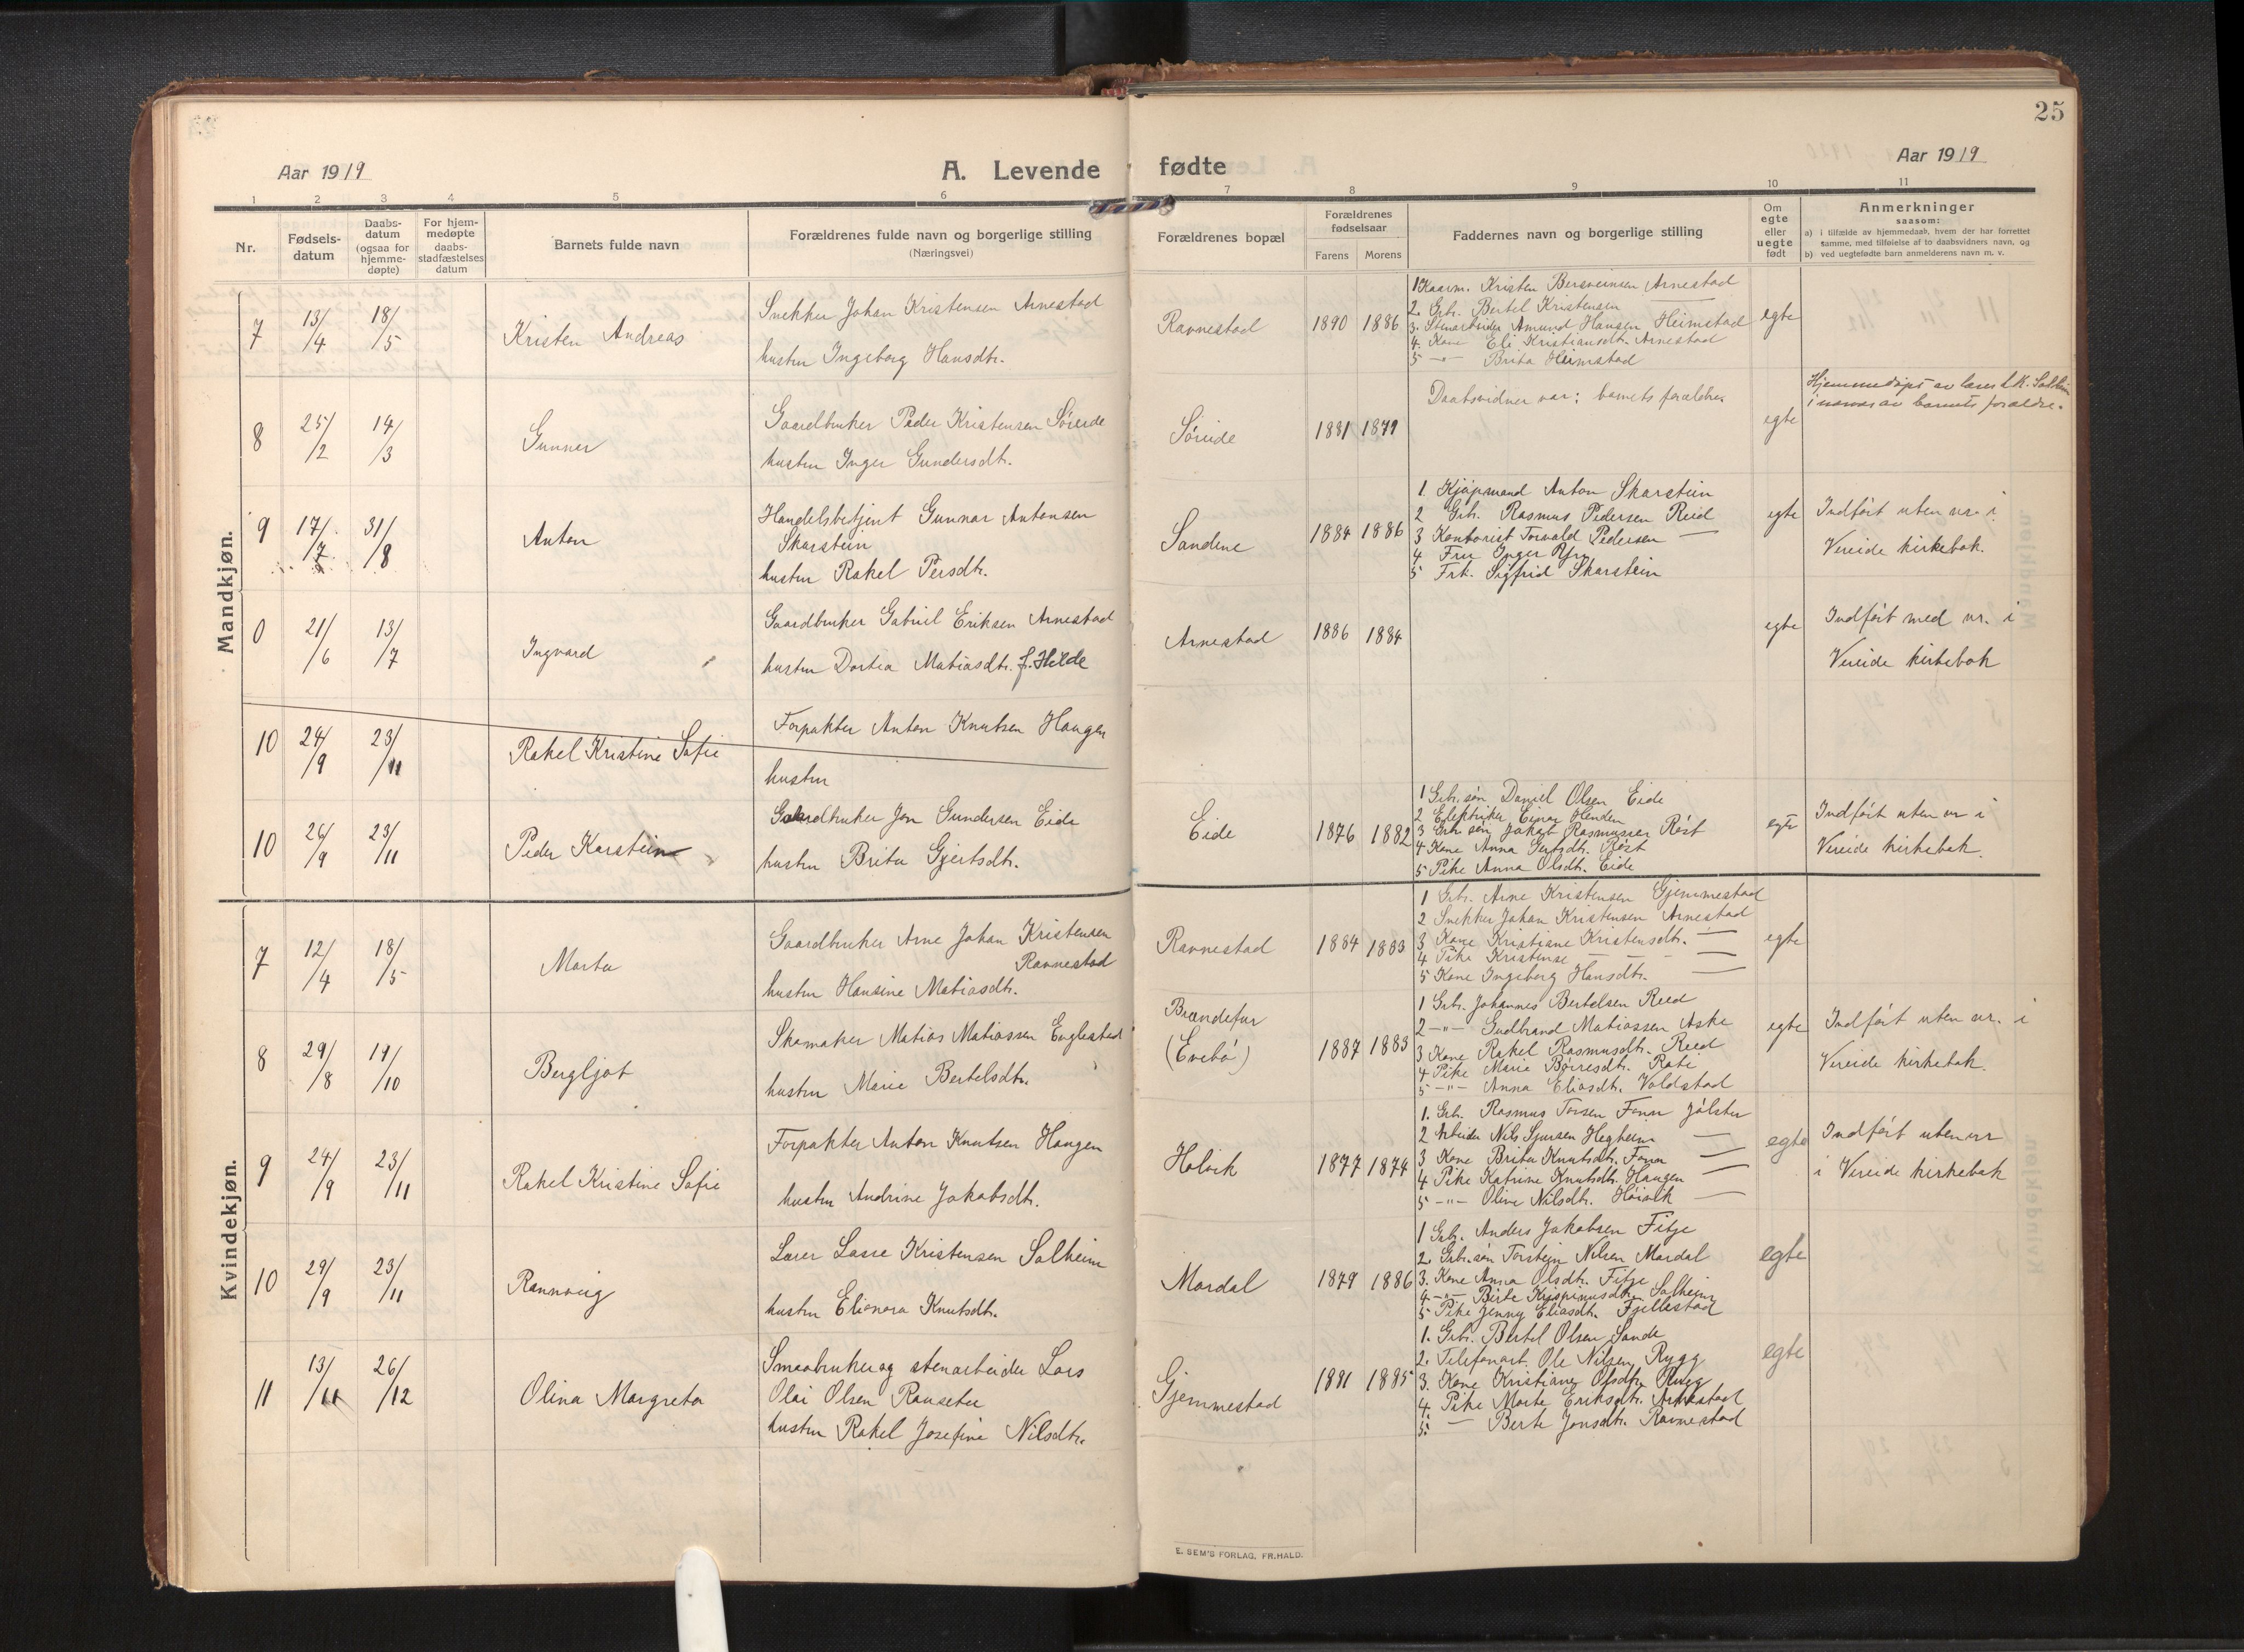 25
Aar 1919
A. Levende fødte
Aar 1919
1 2 3 4 5 6 7 8 9 10 11
Nr.
Fødsels-
datum
Daabs-
datum
(ogsaa for
hjemme-
døpte)
For hjem-
medøpte
daabs-
stadfæstelses
datum
Barnets fulde navn
Forældrenes fulde navn og borgerlige stilling
(Næringsvei)
Forældrenes bopæl
Forældrenes
fødselsaar
Farens Morens
Faddernes navn og borgerlige stilling
Om
egte
eller
uegte
født
Anmerkninger
saasom:
a) i tilfælde av hjemmedaab, hvem der har forrettet
samme, med tilføielse af to daabsvidners navn, og
b) ved uegtefødte barn anmelderens navn m. v.
Mandkjøn.
7 13/4 18/5 Kristen Andreas
Snekker Johan Kristensen Arnestad
hustru Ingeborg Hansdtr.
Ravnestad 1890 1886
1 Kaarm. Kristen Bersveinsen Arnestad
2. Grb. Bertel Kristensen —
3. Stenarbeider Amund Hansen Heimstad
4. Kone Eli Kristiansdtr. Arnestad
5 -"- Brita Heimstad
egte
8 25/2 14/3 Gunnar
Gaardbruker Peder Kristensen Söreide
hustru Inger Gundersdtr.
Söreide 1881 1879
Daabsvidner var: barnets forældre
egte
Hjemmedöpt av lærer L.K. Solheim
i nærvær av barnets forældre.
9 17/7 31/8 Anton
Handelsbetjent Gunnar Antonsen
Skarstein
hustru Rakel Persdtr.
Sandene 1884 1886
1. Kjöpmand Anton Skarstein
2 Grb. Rasmus Pedersen Reid
3 Kontorist Torvald Pedersen —
4. Fru Inger
5 Frk. Sigfrid Skarstein
egte
Indfört uten nr. i
Vereide kirkebok.
0 21/6 13/7 Ingvard
Gaardbruker Gabriel Eriksen Arnestad
hustru Dortea Matiasdtr. f. Hilde
Arnestad 1886 1884
egte
Indfört med nr. i
Vereide kirkebok
10 24/9 23/11 Rakel Kristine Sofie
Forpakter Anton Knutsen Haugen
hustru
10 26/9 23/11 Peder Karstein
Gaardbruker Jon Gundersen Eide
hustru Brita Gjertsdtr.
Eide 1876 1882
1 Grb.sön Daniel Olsen Eide
2 Elektriker Einar Henden
3 Grb sön Jakob Rasmussen Röst
4 Kone Anna Gertsdtr. Röst
5 Pike Anna Olsdtr. Eide
egte
Indfört uten nr i
Vereide kirkebok.
Kvindekjøn.
7 12/4 18/5 Marta
Gaardbruker Arne Johan Kristensen
Ravnestad
hustru Hansine Matiasdtr.
Ravnestad 1884 1883
1 Grb. Arne Kristensen Gjemmestad
2 Snekker Johan Kristensen Arnestad
3 Kone Kristiane Kristensdtr. —
4 Pike Kristense — — —
5 Kone Ingeborg Hansdtr. —
egte
8 29/8 19/10 Bergljot
Skomaker Matias Matiassen Englestad
hustru Marie Bertelsdtr.
Brandefur
(Evebö)
1887 1883
1 Grb. Johannes Bertelsen Reed
2 -"- Gudbrand Matiassen Aske
3 Kone Rakel Rasmusdtr. Reed
4 Pike Marie Böiresdtr. Roti
5 -"- Anna Eliasdtr. Voldstad
egte
Indfört uten nr. i
Vereide kirkebok.
9 24/9 23/11 Rakel Kristine Sofie
Forpakter Anton Knutsen Haugen
hustru Andrine Jakobsdtr.
Holvik 1877 1874
1. Grb. Rasmus Torsen Fonn Jölster
2 Arbeider Nils Sjursen Hegheim —
3 Kone Brita Knutsdtr. Fonn —
4 Pike Katrine Knutsdtr. Haugen —
5 -"- Oline Nilsdtr. Höivik —
egte
Indfört uten nr
i Vereide kirkebok
10 29/9 23/11 Rannveig
Lærer Lasse Kristensen Solheim
hustru Elionora Knutsdtr.
Mardal 1879 1886
1 Grb. Anders Jakobsen Fitje
2. Grb.sön Torstein Nilsen Mardal
3. Kone Anna Olsdtr. Fitje
4 -"- Birte Krispinusdtr. Solheim
5 Pike Jenny Eliasdtr. Fjellestad
egte
11 13/11 26/12 Olina Margreta
Smaabruker og stenarbeider Lars
Olai Olsen Ranseter
hustru Rakel Josefine Nilsdtr.
Gjemmestad 1891 1885
1. Grb. Bertel Olsen Sande
2. Telefonarb. Ole Nilsen Rygg
3. Kone Kristiane Olsdtr. Rygg
4. Pike Marte Eriksdtr. Arnestad
5. — Berte Jonsdtr. Ravnestad
egte
E. SEM'S FORLAG, FR.HALD.